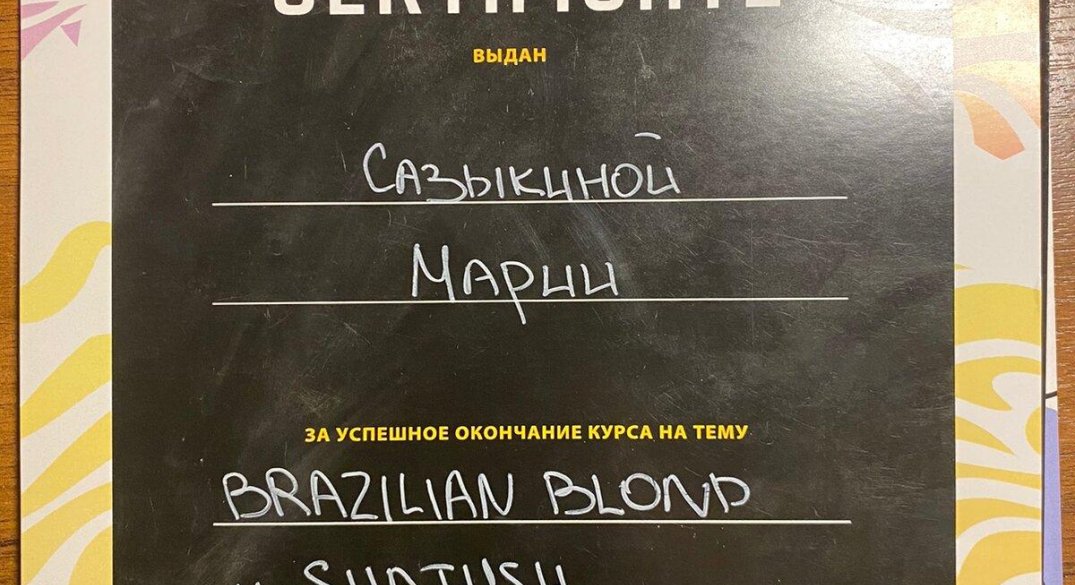 CERTIFICATE
ВЫДАН
Сазыкиной
Марии
ЗА УСПЕШНОЕ ОКОНЧАНИЕ КУРСА НА ТЕМУ
BRAZILIAN BLOND
SHATUSH